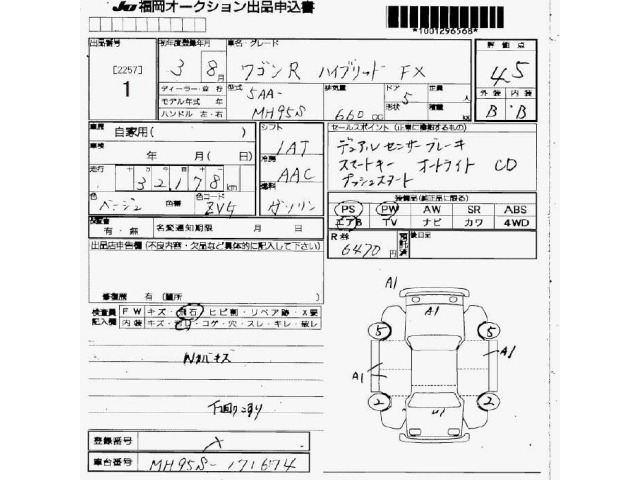 JU 福岡オークション出品申込書
*1001296568*
出品番号 初年度登録年月 車名・グレード 評価点
[2257] 3 8月 ワゴンR ハイブリッド FX 4.5
1
ディーラー・並行 型式 5AA- 排気量 ドア 5 定員 人 外装 内装
モデル年式 年 形状 積載
ハンドル 左・右 MH95S 660 CC kg B・B
車歴 自家用( ) シフト セールスポイント (正常に機能するもの)
車検 年 月( ) 1AT デュアルセンサーブレーキ
冷房 スマートキー オートライト CD
走行 32178km AAC プッシュスタート
燃料
色 ベージュ 色替 色コード ZVG ガソリン 装備品(純正品に限る)
PS PW AW SR ABS
エアB TV ナビ カワ 4WD
保証書 有・無 名変通知期限 月 日
R券 6470円 預託済 後日品
出品店申告欄 (不良内容・欠品など具体的に記入して下さい)
修復歴 有 [箇所 ]
検査員 FW キズ・飛石・ヒビ割・リペア跡・X要
記入欄 内装 キズ・コゲ・穴・スレ・キレ・破レ
A1
A1
5 5
A1
A1
2 2
登録番号
車台番号 MH95S-171674